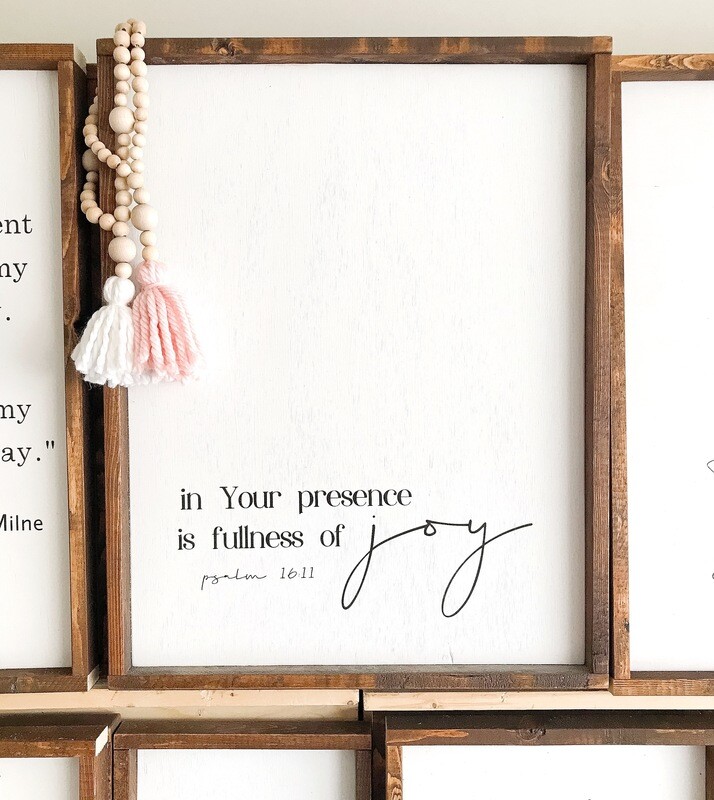 ent
my
.
my
ay."
Milne
in Your presence
is fullness of joy
psalm 16:11